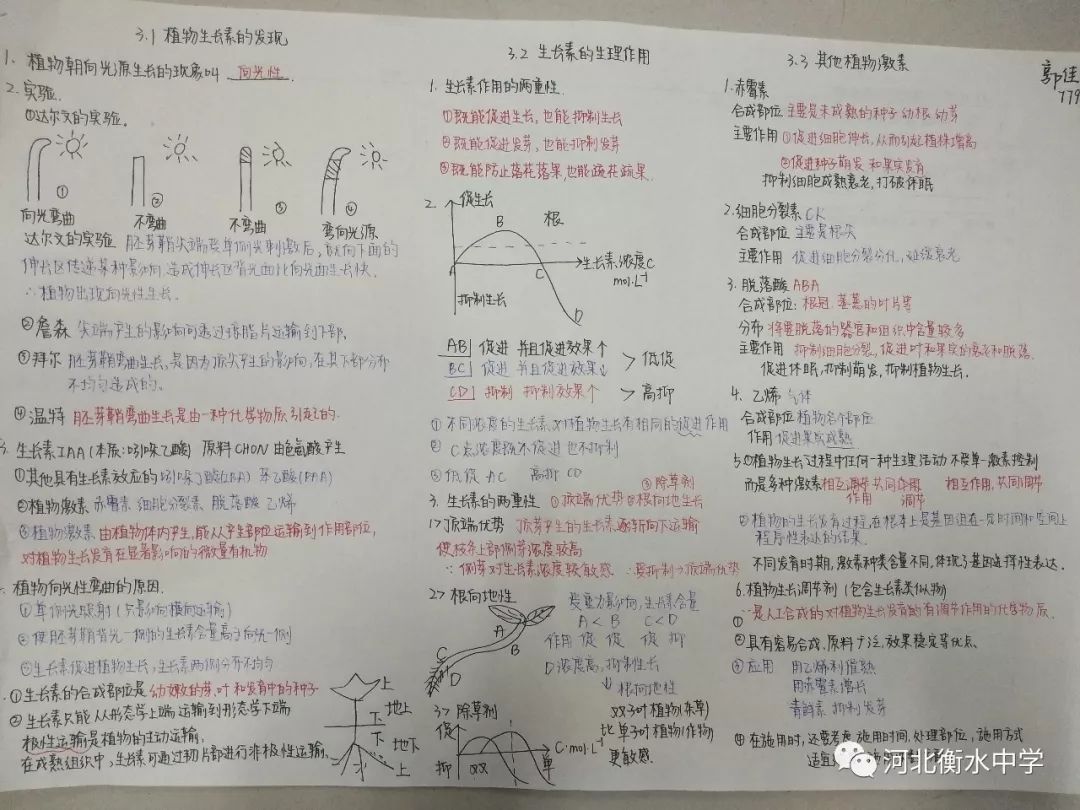 3.1 植物生长素的发现
1. 植物朝向光源生长的现象叫 向光性.
2. 实验.
①达尔文的实验.
① ② ③ ④
向光弯曲 不弯曲 不弯曲 弯向光源
达尔文的实验 胚芽鞘尖端受单侧光刺激后, 就向下面的
伸长区传递某种影响, 造成伸长区背光面比向光面生长快.
∴植物出现向光性生长.
②詹森 尖端产生的影响可透过琼脂片运输到下部.
③拜尔 胚芽鞘弯曲生长, 是因为顶尖产生的影响, 在其下部分布
不均匀造成的.
④温特 胚芽鞘弯曲生长是由一种化学物质引起的.
生长素IAA (本质: 吲哚乙酸) 原料CHON 由色氨酸产生
①其他具有生长素效应的 吲哚丁酸(IBA) 苯乙酸(PAA)
②植物激素 赤霉素 细胞分裂素 脱落酸 乙烯
③植物激素 由植物体内产生, 能从产生部位运输到作用部位,
对植物生长发育在显著影响的微量有机物
植物向光性弯曲的原因.
①单侧光照射 (只影响横向运输)
②使胚芽鞘背光一侧的生长素含量高于向光一侧
③生长素促进植物生长, 生长素两侧分布不均匀
①生长素的合成部位是 幼嫩的芽, 叶和发育中的种子
②生长素只能从形态学上端运输到形态学下端
极性运输是植物的主动运输.
在成熟组织中, 生长素可通过韧皮部进行非极性运输.
上 地上
下
下 地下
上
3.2 生长素的生理作用
1. 生长素作用的两重性.
①既能促进生长, 也能抑制生长
②既能促进发芽, 也能抑制发芽
③既能防止落花落果, 也能疏花疏果.
2. 促生长
A B C D 根
生长素浓度C
mol·L⁻¹
抑制生长
AB 促进 并且促进效果↑
BC 促进 并且促进效果↓ > 低促
CD 抑制 抑制效果↑ > 高抑
①不同浓度的生长素, 对植物生长有相同的促进作用
② C点浓度既不促进也不抑制
③低促 AC 高抑 CD
③除草剂
3. 生长素的两重性 ①顶端优势 ②根向地生长
1> 顶端优势 顶芽产生的生长素逐渐向下运输
使枝条上部侧芽浓度较高
∵侧芽对生长素浓度较敏感 ∴受抑制→顶端优势
2> 根向地性
A B C D
受重力影响, 生长素含量
A<B C<D
作用 促 促 促 抑
D浓度高, 抑制生长
↓
根向地性
3> 除草剂
促
抑 双 单
C·mol·L⁻¹
双子叶植物(杂草)
比单子叶植物(作物)
更敏感.
3.3 其他植物激素
郭佳
779
1. 赤霉素
合成部位 主要是未成熟的种子 幼根 幼芽
主要作用 ①促进细胞伸长, 从而引起植株增高
②促进种子萌发 和果实发育
抑制细胞成熟衰老, 打破休眠
2. 细胞分裂素 CK
合成部位 主要是根尖
主要作用 促进细胞分裂分化, 延缓衰老
3. 脱落酸 ABA
合成部位: 根冠. 萎蔫的叶片等
分布 将要脱落的器官和组织中含量较多
主要作用 抑制细胞分裂, 促进叶和果实的衰老和脱落.
促进休眠, 抑制萌发, 抑制植物生长.
4. 乙烯 气体
合成部位 植物各个部位
作用 促进果实成熟
5.①植物生长过程中任何一种生理活动 不是单一激素控制
而是多种激素相互调节 共同作用 相互作用, 共同调节
作用 调节
②植物的生长发育过程, 在根本上是基因组在一定时间和空间上
程序性表达的结果.
不同发育时期, 激素种类含量不同, 体现了基因选择性表达.
6. 植物生长调节剂 (包含生长素类似物)
①是人工合成的对植物生长发育的有调节作用的化学物质.
②具有容易合成, 原料广泛, 效果稳定等优点.
③应用 用乙烯利催熟
用赤霉素增长
青鲜素 抑制发芽
④在施用时, 还要考虑施用时间, 处理部位, 施用方式
适宜
河北衡水中学